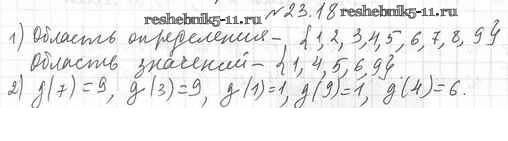 reshebnik5-11.ru
№23.18 reshebnik5-11.ru
1) Область определения - {1, 2, 3, 4, 5, 6, 7, 8, 9}
Область значений - {1, 4, 5, 6, 9}.
2) g(7)=9, g(3)=9, g(1)=1, g(9)=1, g(4)=6.